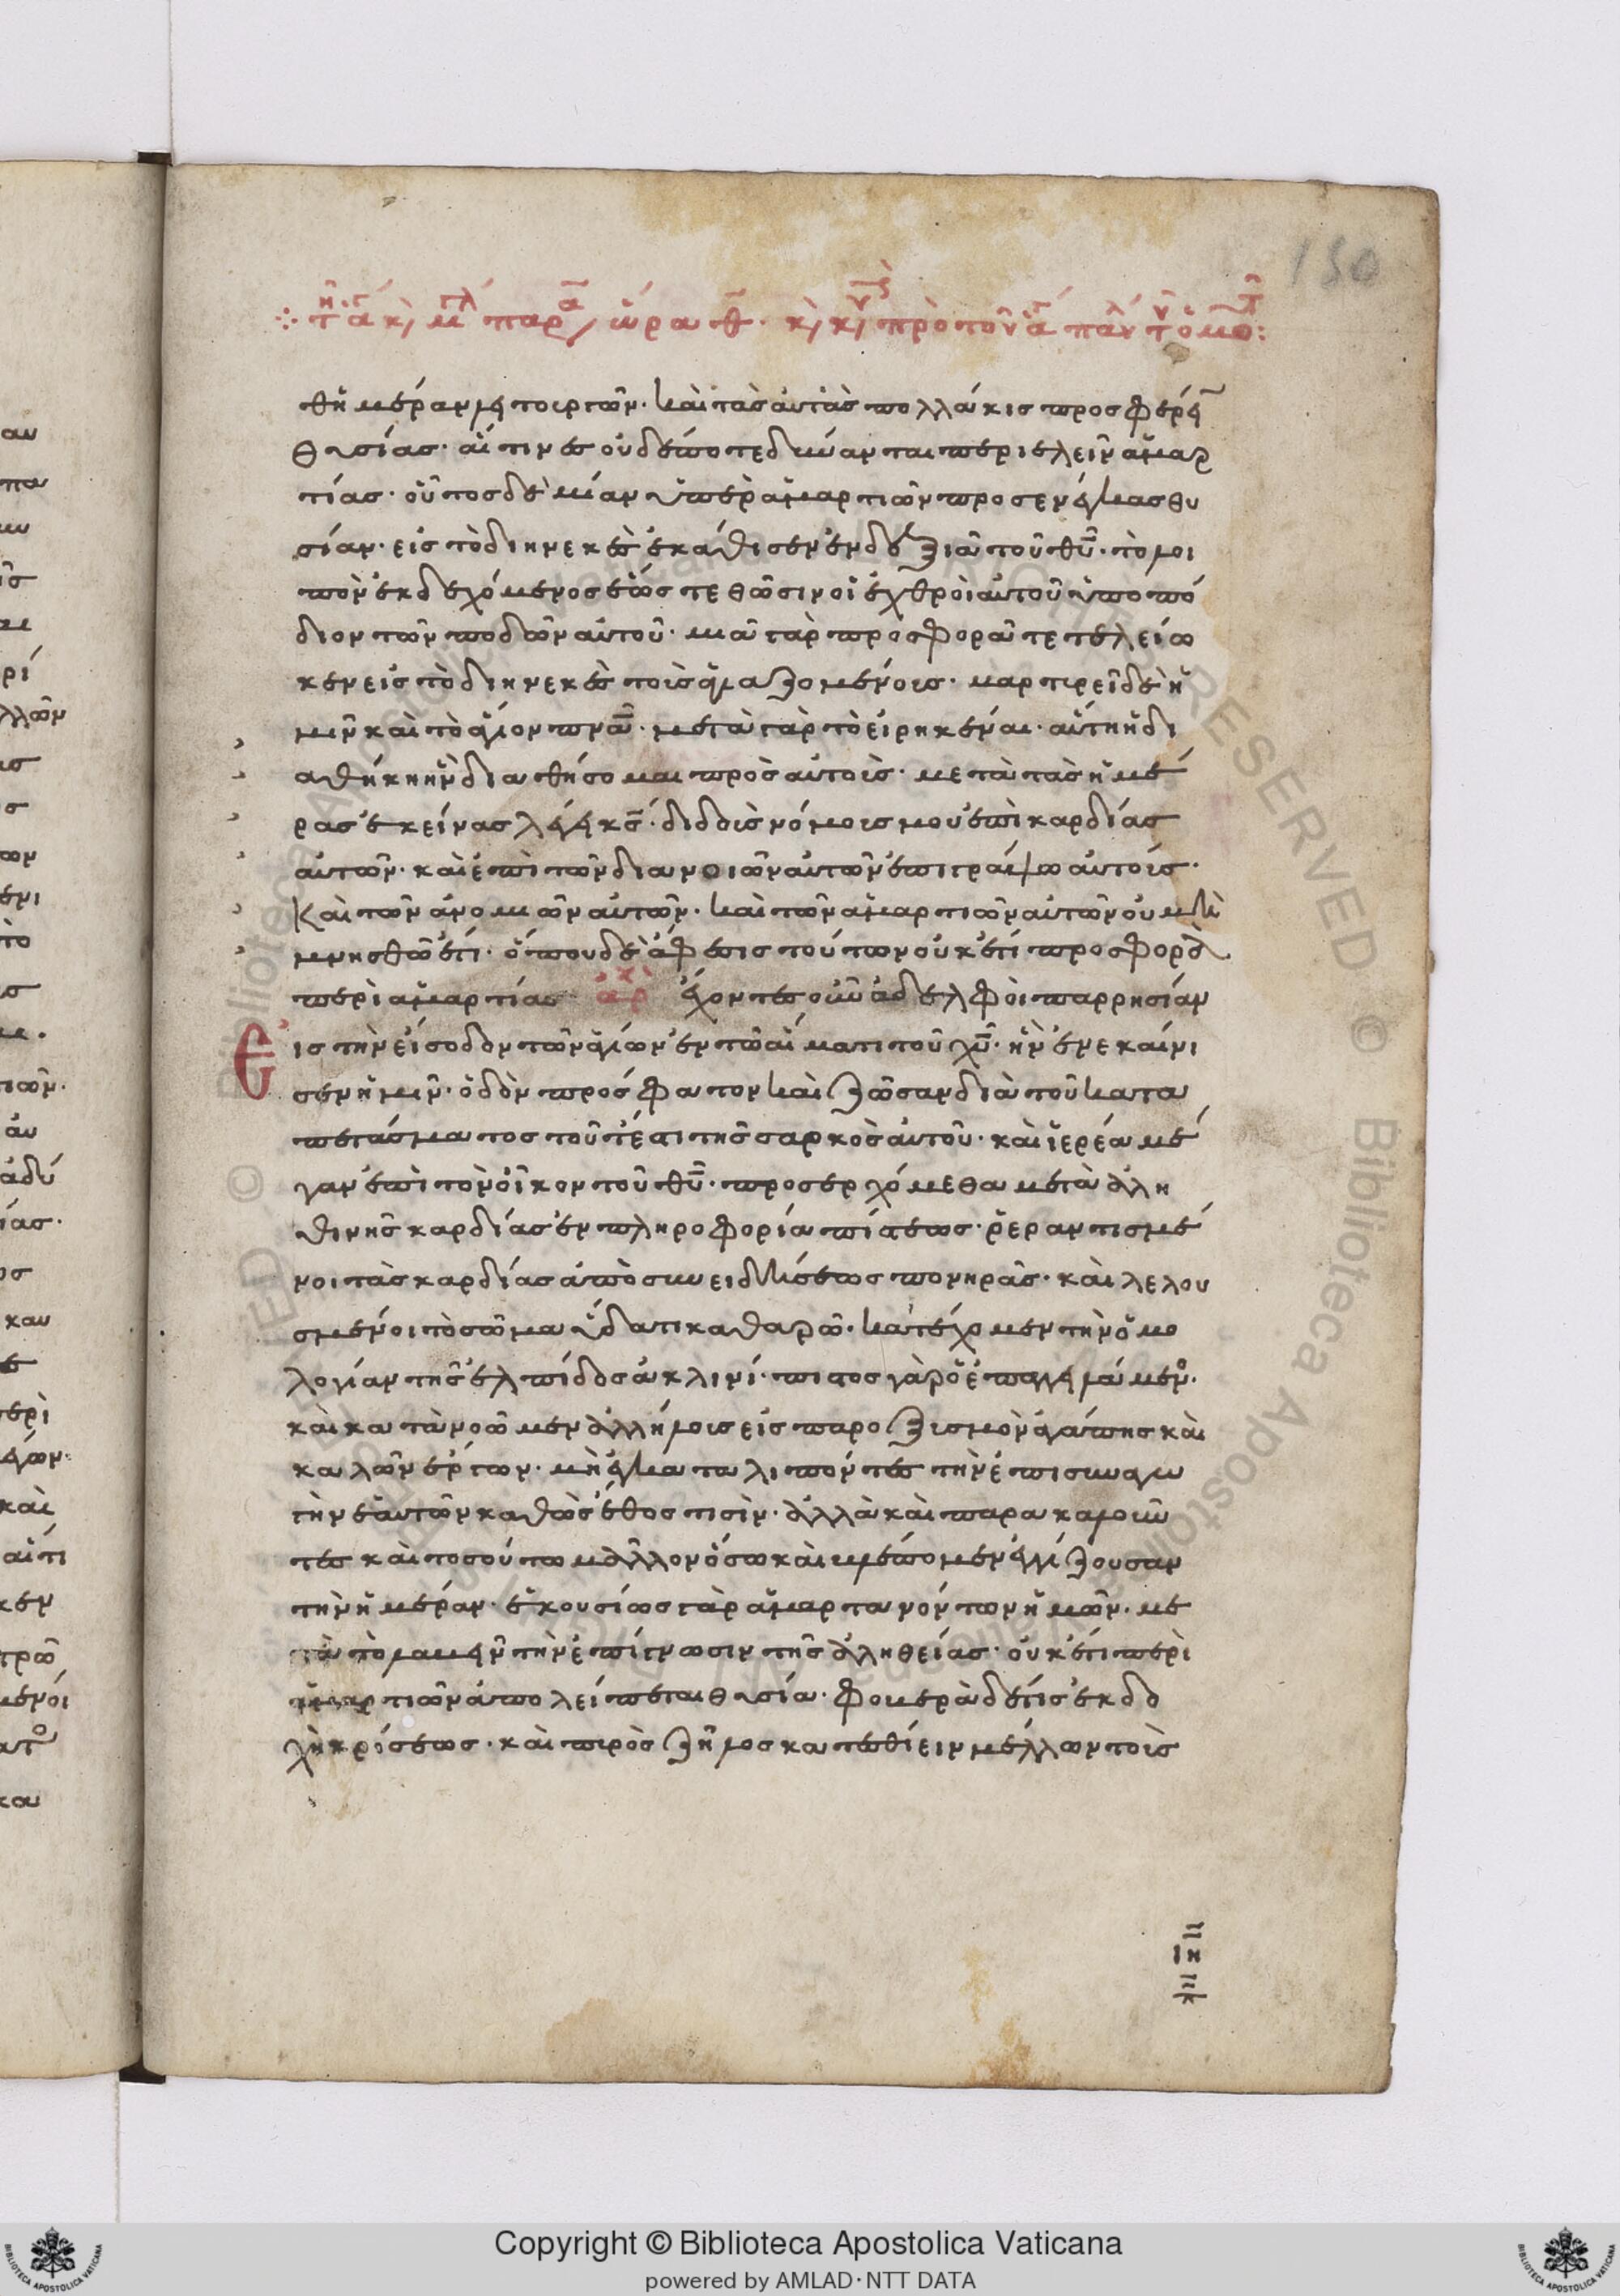 150
θἡμέραν λειτουργῶν· καὶ τὰς αὐτὰς πολλάκις προσφέρει
θυσίας· αἵτινες οὐδέποτε δύνανται περιελεῖν ἁμαρ
τίας· οὗτος δὲ μίαν ὑπὲρ ἁμαρτιῶν προσενέγκας θυ
σίαν· εἰς τὸ διηνεκὲς ἐκάθισεν ἐν δεξιᾶ τοῦ θῦ· τὸ λοι
πὸν ἐκδεχόμενος ἕως τεθῶσιν οἱ ἐχθροὶ αὐτοῦ ὑποπό
διον τῶν ποδῶν αὐτοῦ· μιᾶ γὰρ προσφορᾶ τετελείω
κεν εἰς τὸ διηνεκὲς τοὶς ἁγιαζομένοις· μαρτυρεῖ δὲ ἡ
μῖν καὶ τὸ ἅγιον πνᾶ· μετὰ γὰρ τὸ εἰρηκέναι· αὕτη ἡ δι
αθήκη ἣν διαθήσομαι πρὸς αὐτοὶς· μετὰ τὰς ἡμέ
ρας ἐκείνας λέγει κς· διδοὶς νόμοις μου ἐπὶ καρδίας
αὐτῶν· καὶ ἐπὶ τῶν διανοιῶν αὐτῶν ἐπιγράψω αὐτοίς·
Καὶ τῶν ἀνομιῶν αὐτῶν· καὶ τῶν ἁμαρτιῶν αὐτῶν οὐ μὴ
μνησθῶ ἔτι· ὅπου δὲ ἄφεσις τούτων οὐκέτι προσφορὰ
περὶ ἁμαρτίας ἀρχ ἔχοντες οὖν ἀδελφοὶ παρρησίαν
Εἰς τὴν εἴσοδον τῶν ἁγίων ἐν τῶ αἵματι τοῦ χῦ· ἣν ἐνεκαίνι
σεν ἡμῖν· ὁδὸν πρόσφατον καὶ ζῶσαν διὰ τοῦ κατα
πετάσματος τοῦτέστι τῆς σαρκὸς αὐτοῦ· καὶ ἱερέα μέ
γαν ἐπὶ τὸν οἶκον τοῦ θῦ· προσερχόμεθα μετὰ ἀλη
θινῆς καρδίας ἐν πληροφορία πίστεως· ῥεραντισμέ
νοι τὰς καρδίας ἀπὸ συνειδήσεως πονηρᾶς· καὶ λελου
σμένοι τὸ σῶμα ὕδατι καθαρῶ· κατέχομεν τὴν ὁμο
λογίαν τῆς ἐλπίδος ἀκλινί· πιστος γὰρ ὁ ἐπαγγειλάμενος·
καὶ κατὰνοῶμεν ἀλλήλοις εἰς παροξισμὸν ἀγάπης καὶ
καλῶν ἔργων· μὴ ἐγκαταλιπόντες τὴν ἐπισυναγω
γὴν ἑαυτῶν καθὼς ἔθος τισὶν· ἀλλὰ καὶ παρακαλοῦν
τες καὶ τοσούτω μᾶλλον ὅσω καὶ βλέπομεν ἐγγίζουσαν
τὴν ἡμέραν· ἑκουσίως γὰρ ἁμαρτανόντων ἡμῶν· με
τὰ τὸ λαμεῖν τὴν ἐπίγνωσιν τῆς ἀληθείας· οὐκέτι περὶ
ἁμαρτιῶν ἀπολείπεται θυσία· φομερὰ δέτις ἐκδο
χὴ κρίσεως· καὶ πυρὸς ζῆλος κατεσθίειν μέλλων τοὶς
Copyright © Biblioteca Apostolica Vaticana
powered by AMLAD·NTT DATA